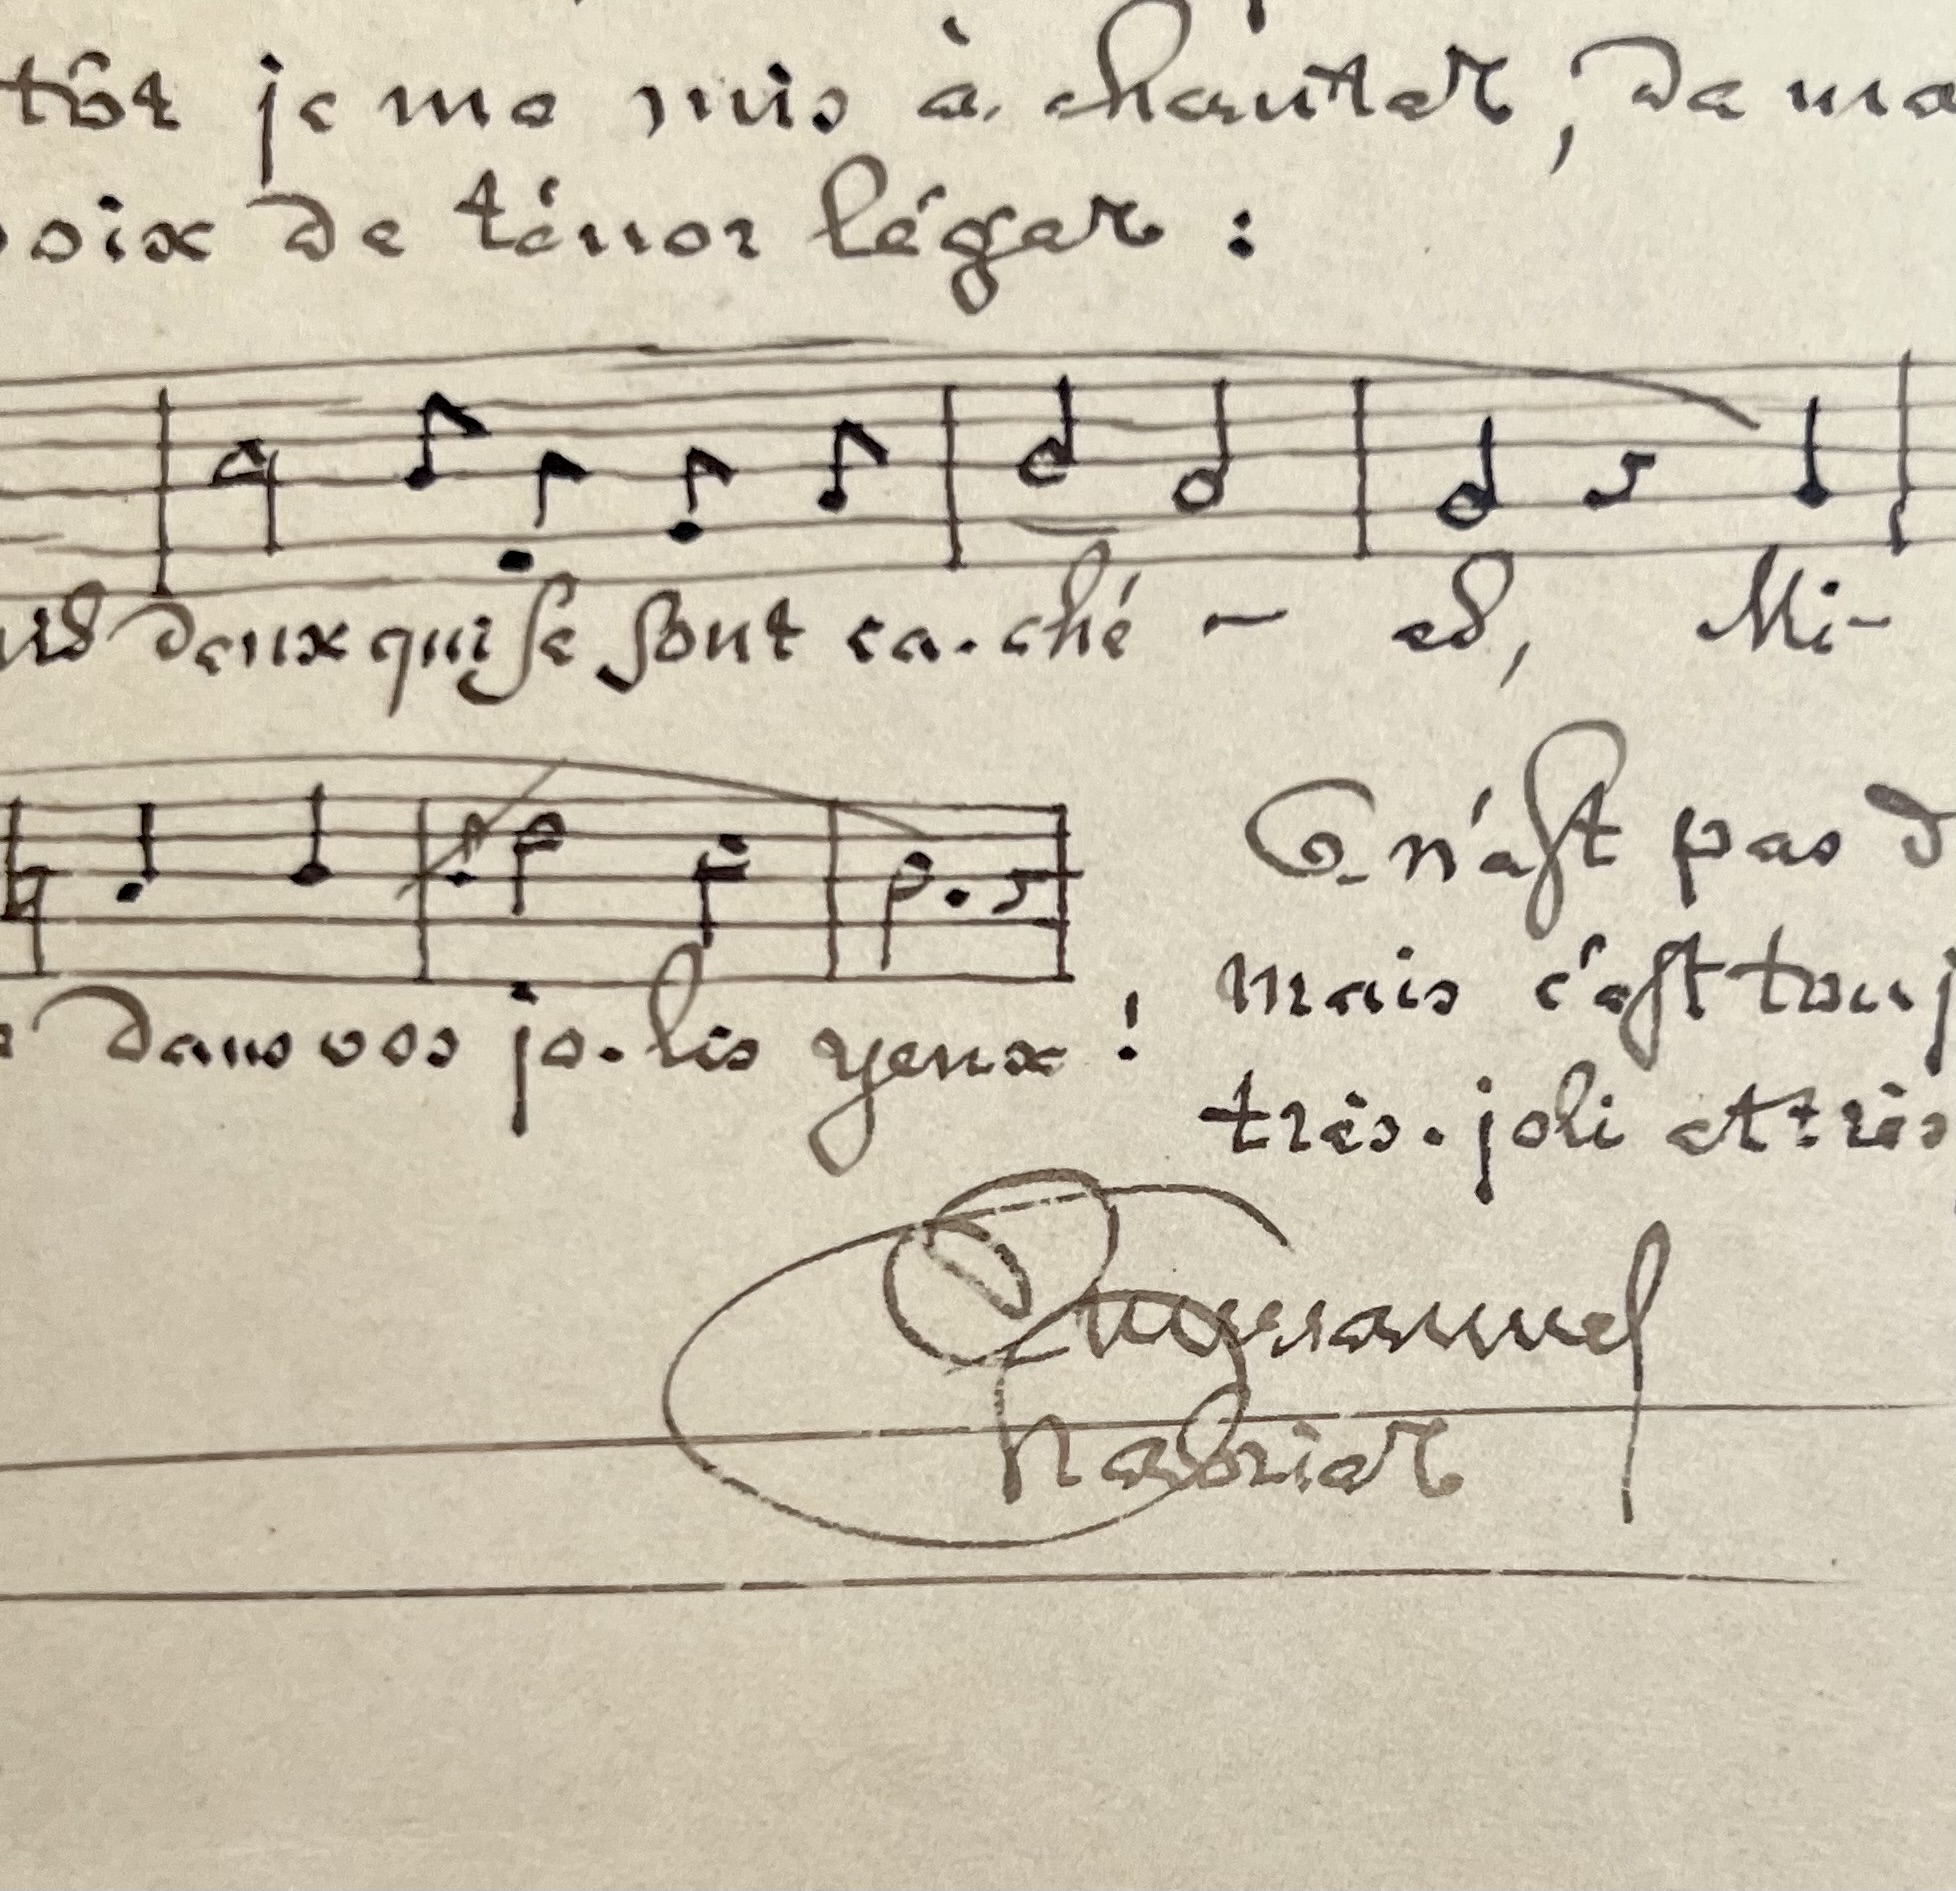 tôt je me mis à chanter, de ma
voix de ténor léger :
deux qui se sont ca-ché - es, Mi-
dans vos jo-lis yeux !
Ce n'est pas d
mais c'est touj
très-joli et très
Emmanuel
Chabrier